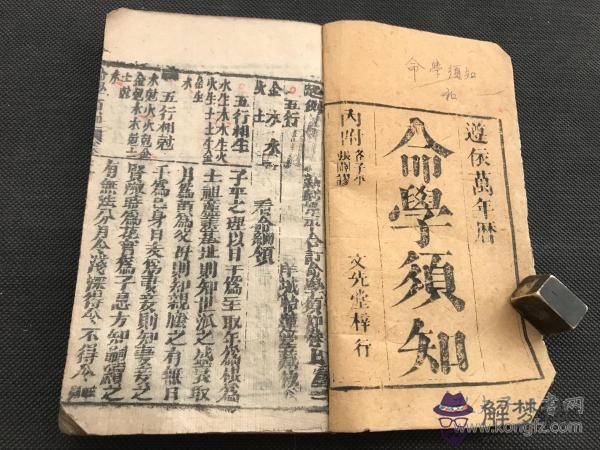 命學須知
遵依萬年曆
命學須知
內附
子平
堂梓行
五行
金木水
火土
五行相生
水生木木生火
火生土土生金
金生水
五行相尅
水尅火火尅金
金尅木木尅土
土尅水
看命綱領
子平之理以日干爲主取年爲根爲
土祖產業基址則知世派之盛衰取
月爲苗爲父母則知親廕之有無日
干爲己身日支爲妻妾則知妻妾之
賢淑時爲花實爲子息方知嗣續之
有無法分月令淺深得令不得令
解梦
www.kongfz.com